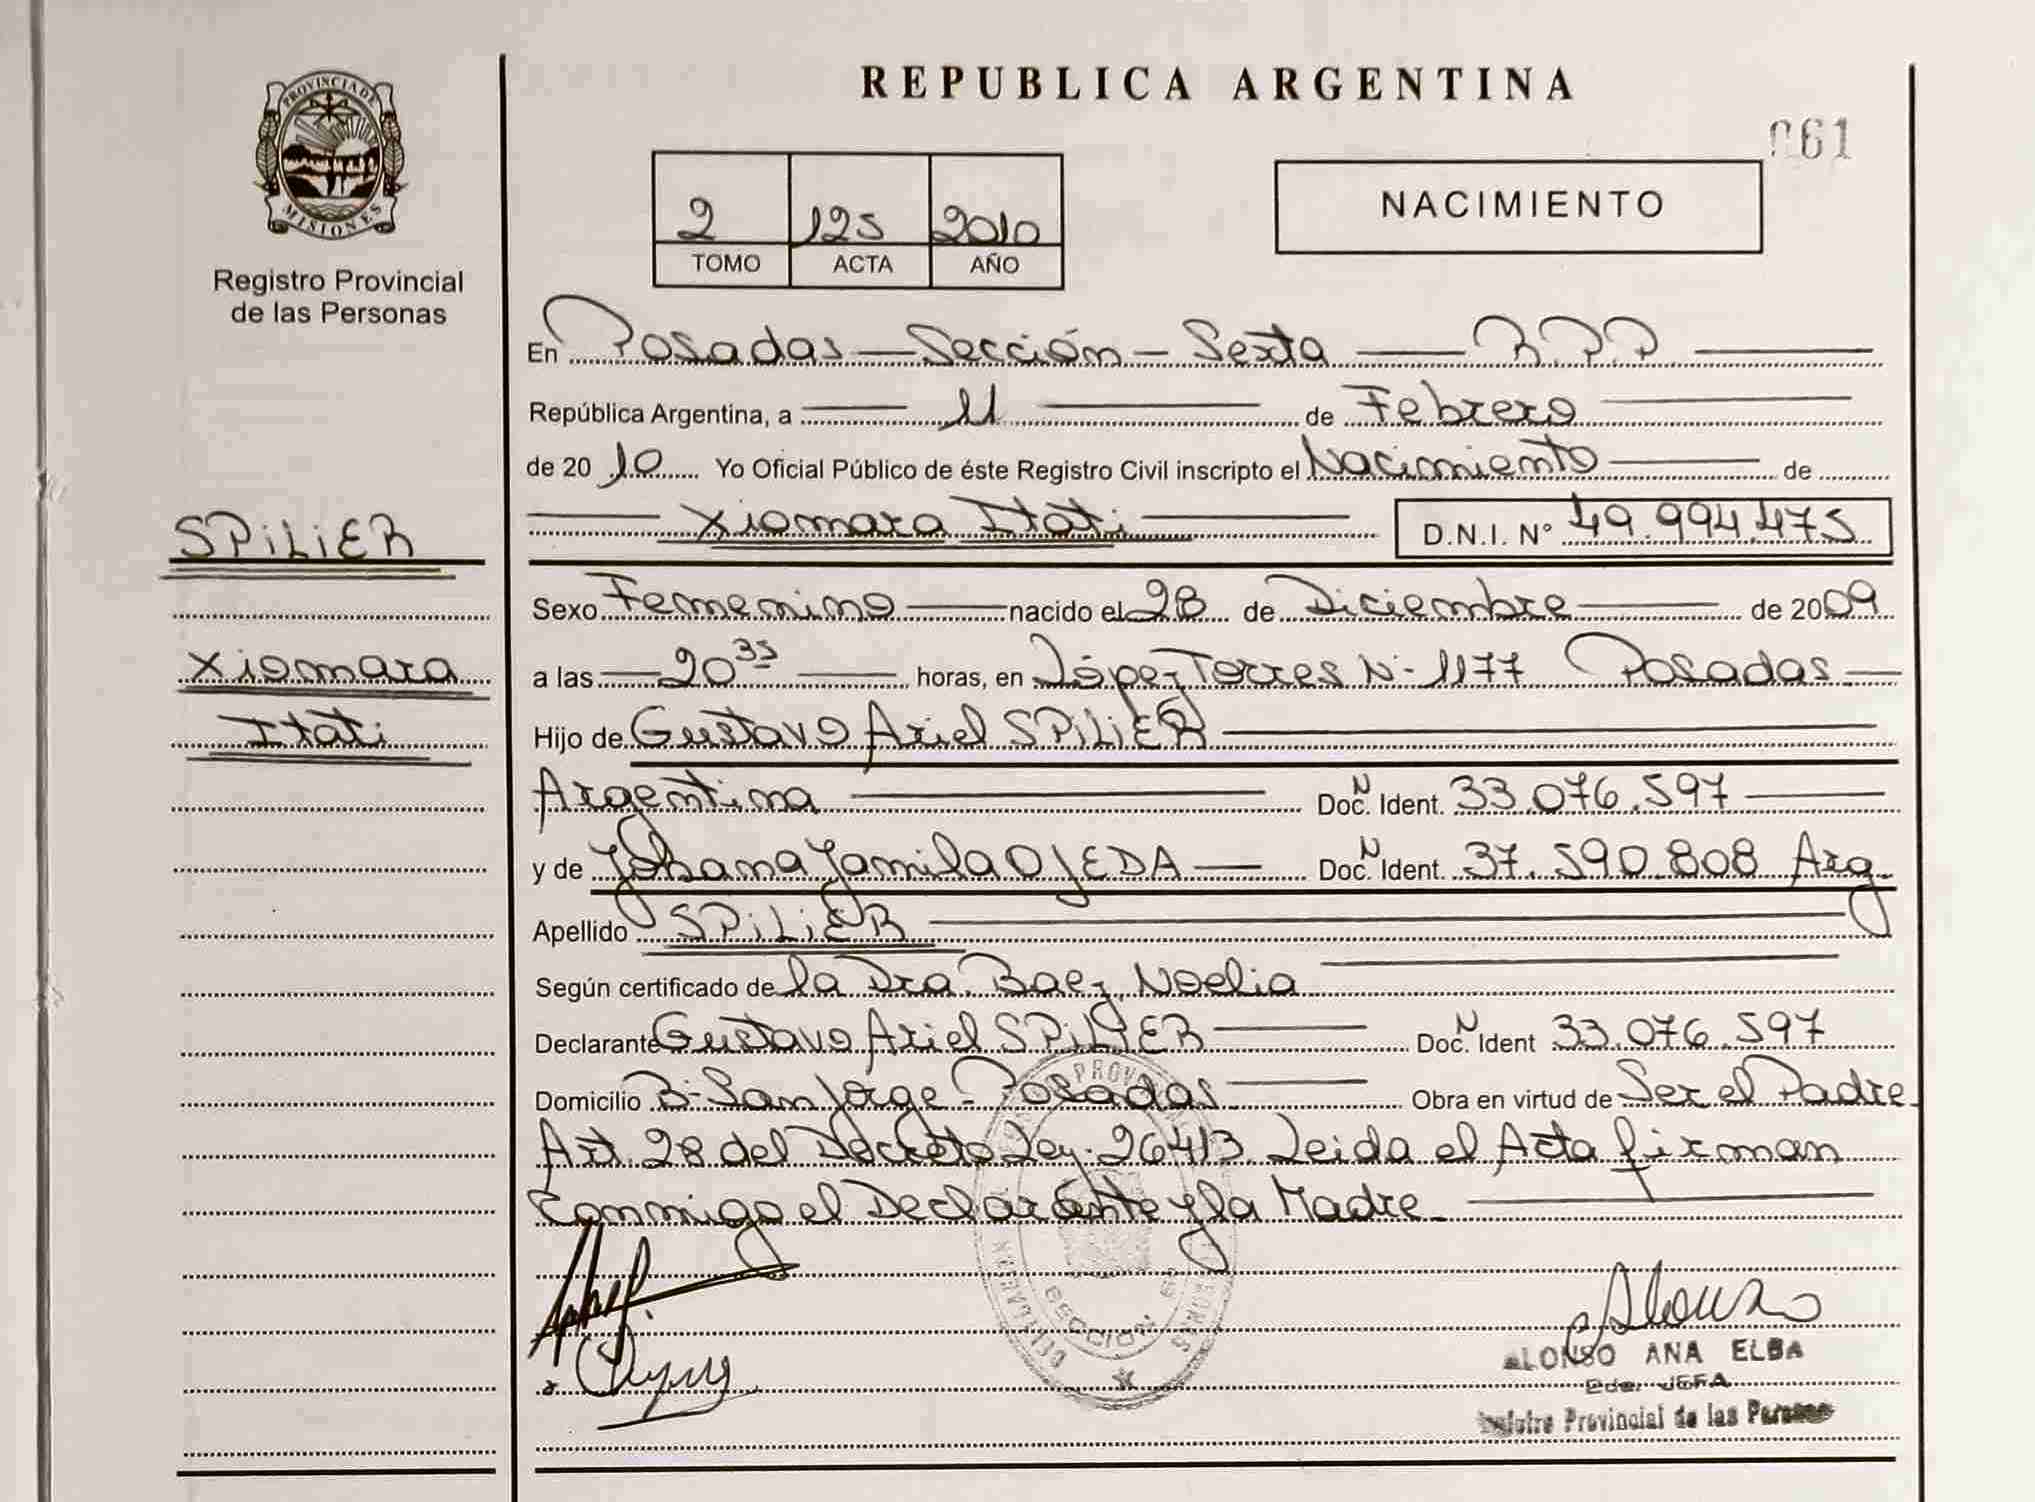 REPUBLICA ARGENTINA
061
PROVINCIA DE
MISIONES
Registro Provincial
de las Personas
2 125 2010
TOMO ACTA AÑO
NACIMIENTO
En Posadas - Sección - Sexta R.P.P
República Argentina, a 11 de Febrero
de 20 10 Yo Oficial Público de éste Registro Civil inscripto el Nacimiento de
SPiLiER
Xiomara Itati D.N.I. Nº 49.994.475
Sexo Femenino nacido el 28 de Diciembre de 2009
Xiomara
Itati
a las 20 35 horas, en López Torres N- 1177 Posadas
Hijo de Gustavo Ariel SPiLiER
Argentina Doc. N Ident. 33.076.597
y de Johana Yamila OJEDA Doc. N Ident. 37.590.808 Arg
Apellido SPiLiER
Según certificado de la Dra. Baez, Noelia
Declarante Gustavo Ariel SPiLiER Doc. N Ident 33.076.597
Domicilio B- San Jorge - Posadas Obra en virtud de Ser el Padre
Art. 28 del Decreto Ley. 26413. Leida el Acta firman
Conmigo el Declarante y la Madre
SECCION
ALONSO ANA ELBA
JEFA
Provincial de las